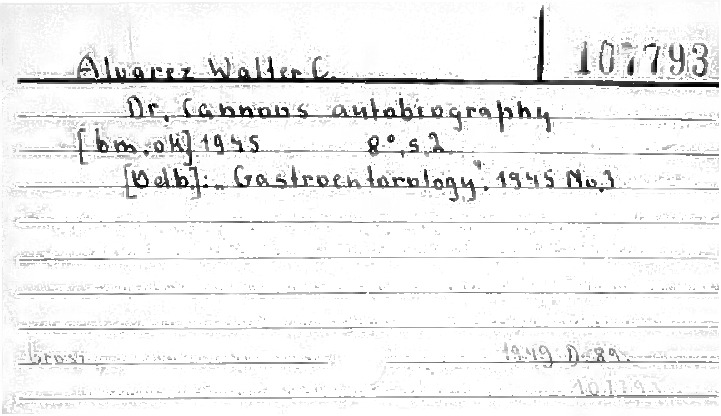 107793
Alvarez Walter C.
Dr. Cannons autobiography
[b.m. ok] 1945 8°, s. 2
[Odb.]: „Gastroenterology". 1945 No. 3
Brosz. 1949 D. 89.
107793